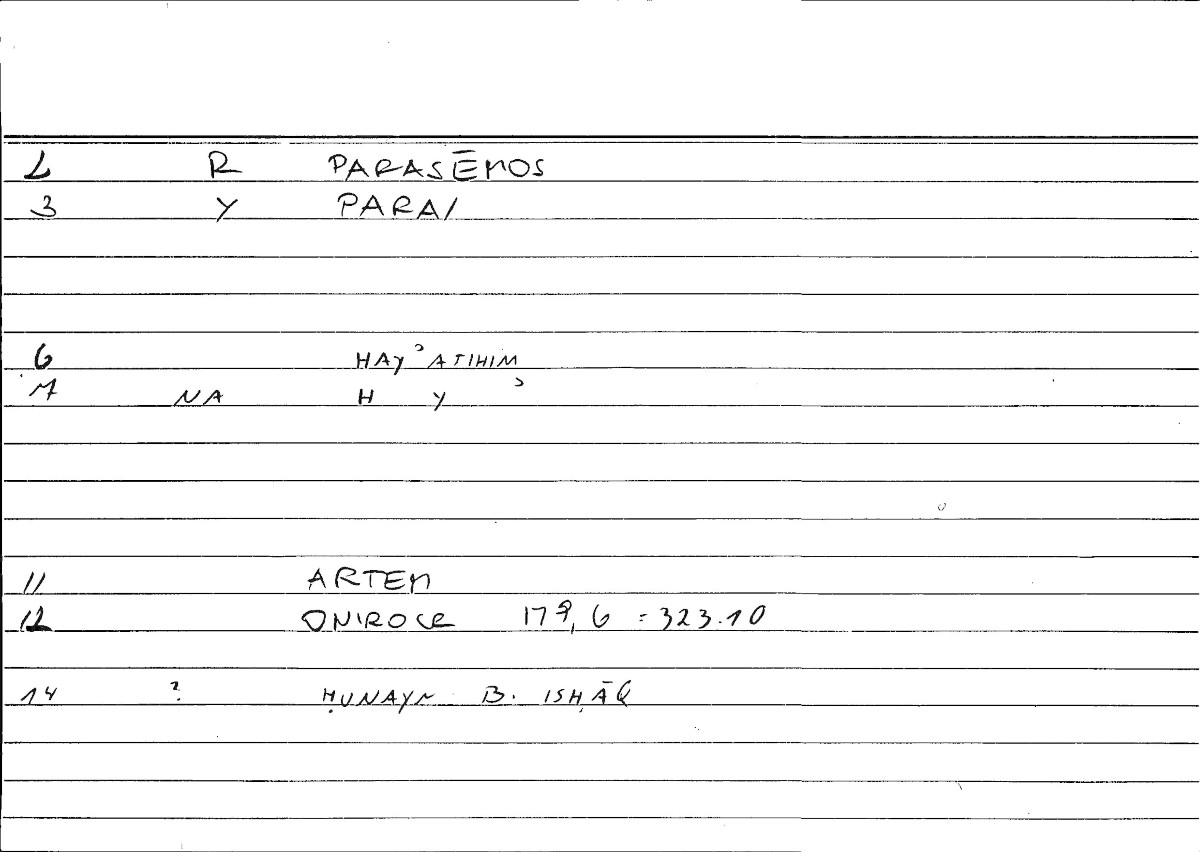 2 R PARASĒMOS
3 Y PARA/
6 HAYʾATIHIM
7 NA H Y ʾ
11 ARTEM
12 ONIROCR 179,6 = 323.10
14 ? ḤUNAYN B. ISḤĀQ